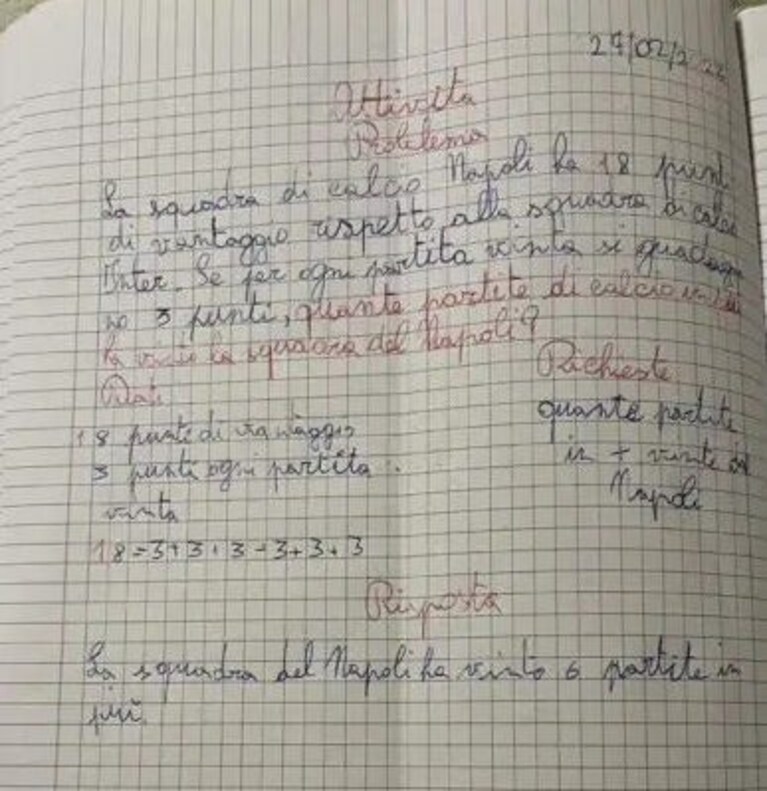 Attività
Problema
La squadra di calcio Napoli ha 18 punti
di vantaggio rispetto alla squadra di calcio
Inter. Se per ogni partita vinta si guadagna
no 3 punti, quante partite di calcio in più
ha vinto la squadra del Napoli?
Dati Richieste
18 punti di vantaggio quante partite
3 punti ogni partita in + vinte
vinta Napoli
18=3+3+3+3+3+3
Risposta
La squadra del Napoli ha vinto 6 partite in
più